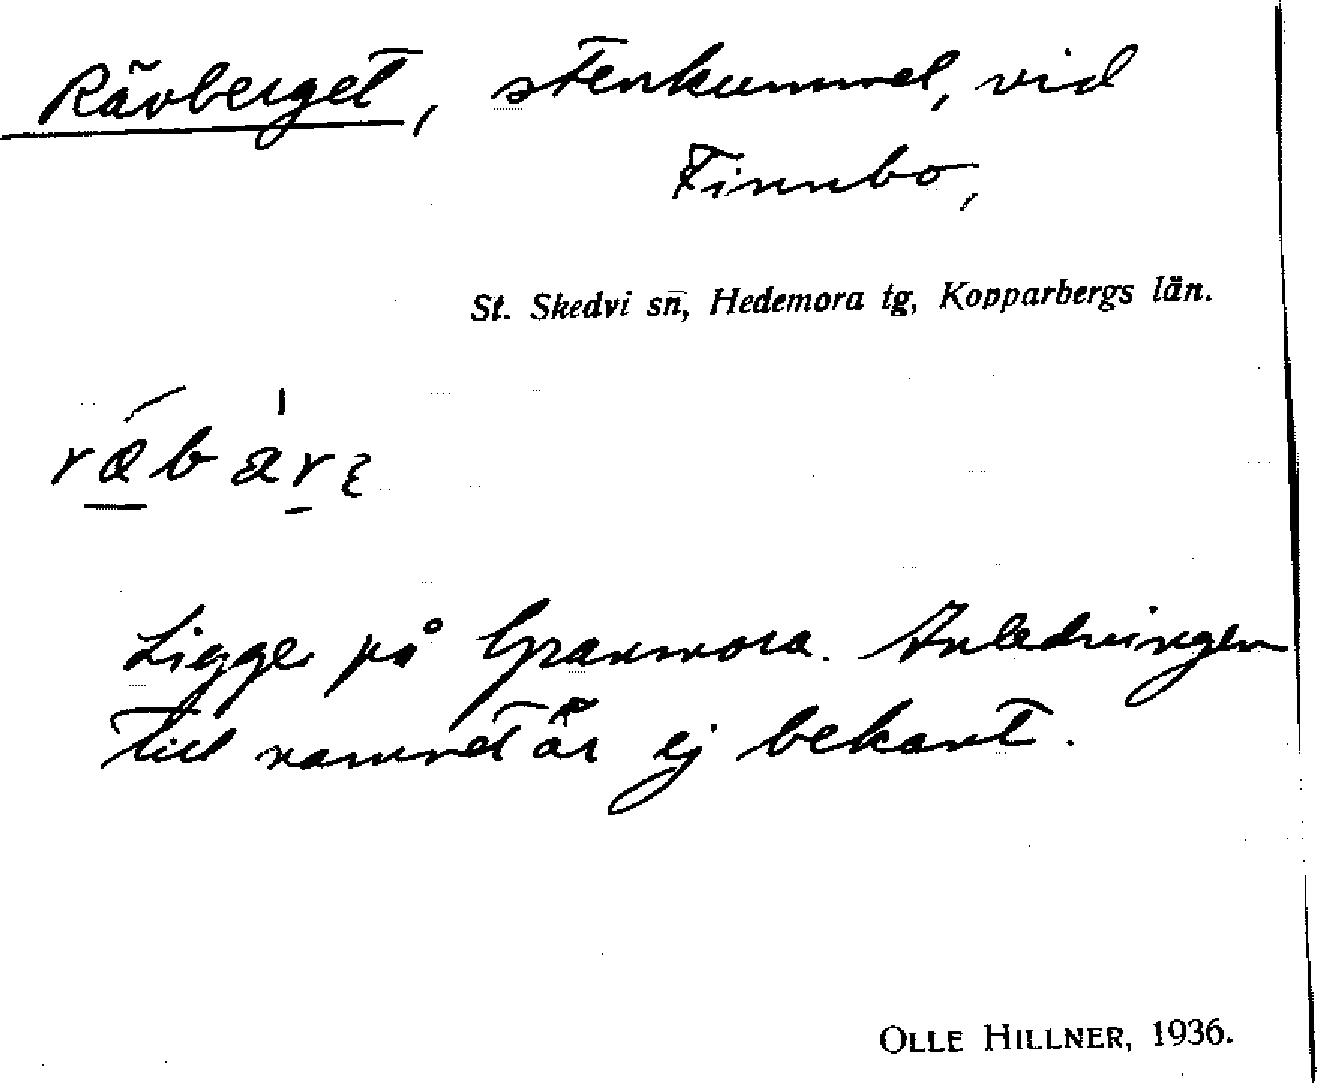 Rävberget, stenkummel, vid
Finnbo,
St. Skedvi sn, Hedemora tg, Kopparbergs län.
ræbærɛ
Ligger på Granmora. Anledningen
till namnet är ej bekant.
OLLE HILLNER, 1936.